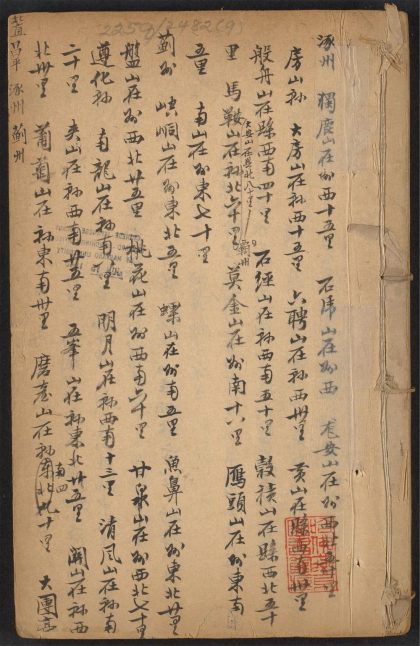 2259/2482(9)
涿州　獨鹿山在州西十五里　石湖山在州西　老安山在州西北五十里
房山縣　大房山在縣西十五里　六聘山在縣西卅里　黃山在縣西南卅里
般舟山在縣西南四十里　石經山在縣西南五十里　穀積山在縣西北五十
大安山在縣北八十里
里　馬鞍山在縣北六十里　霸州　莫金山在州南十八里　鴈頭山在州東南
五里　南山在州東七十里
薊州　崆峒山在州東北五里　螺山在州南五里　魚鼻山在州東北廿里
盤山在州西北廿五里　桃花山在州西南六十里　甘泉山在州西北七十里
遵化縣　南龍山在縣南　里　明月山在縣西南十三里　清風山在縣南
二十里　夾山在縣西南廿五里　五峯山在縣東北廿五里　開山在縣西
北卅里　葡萄山在縣東南卅里　磨臺山在縣東南四十里　大團亭
昌平　涿州　薊州